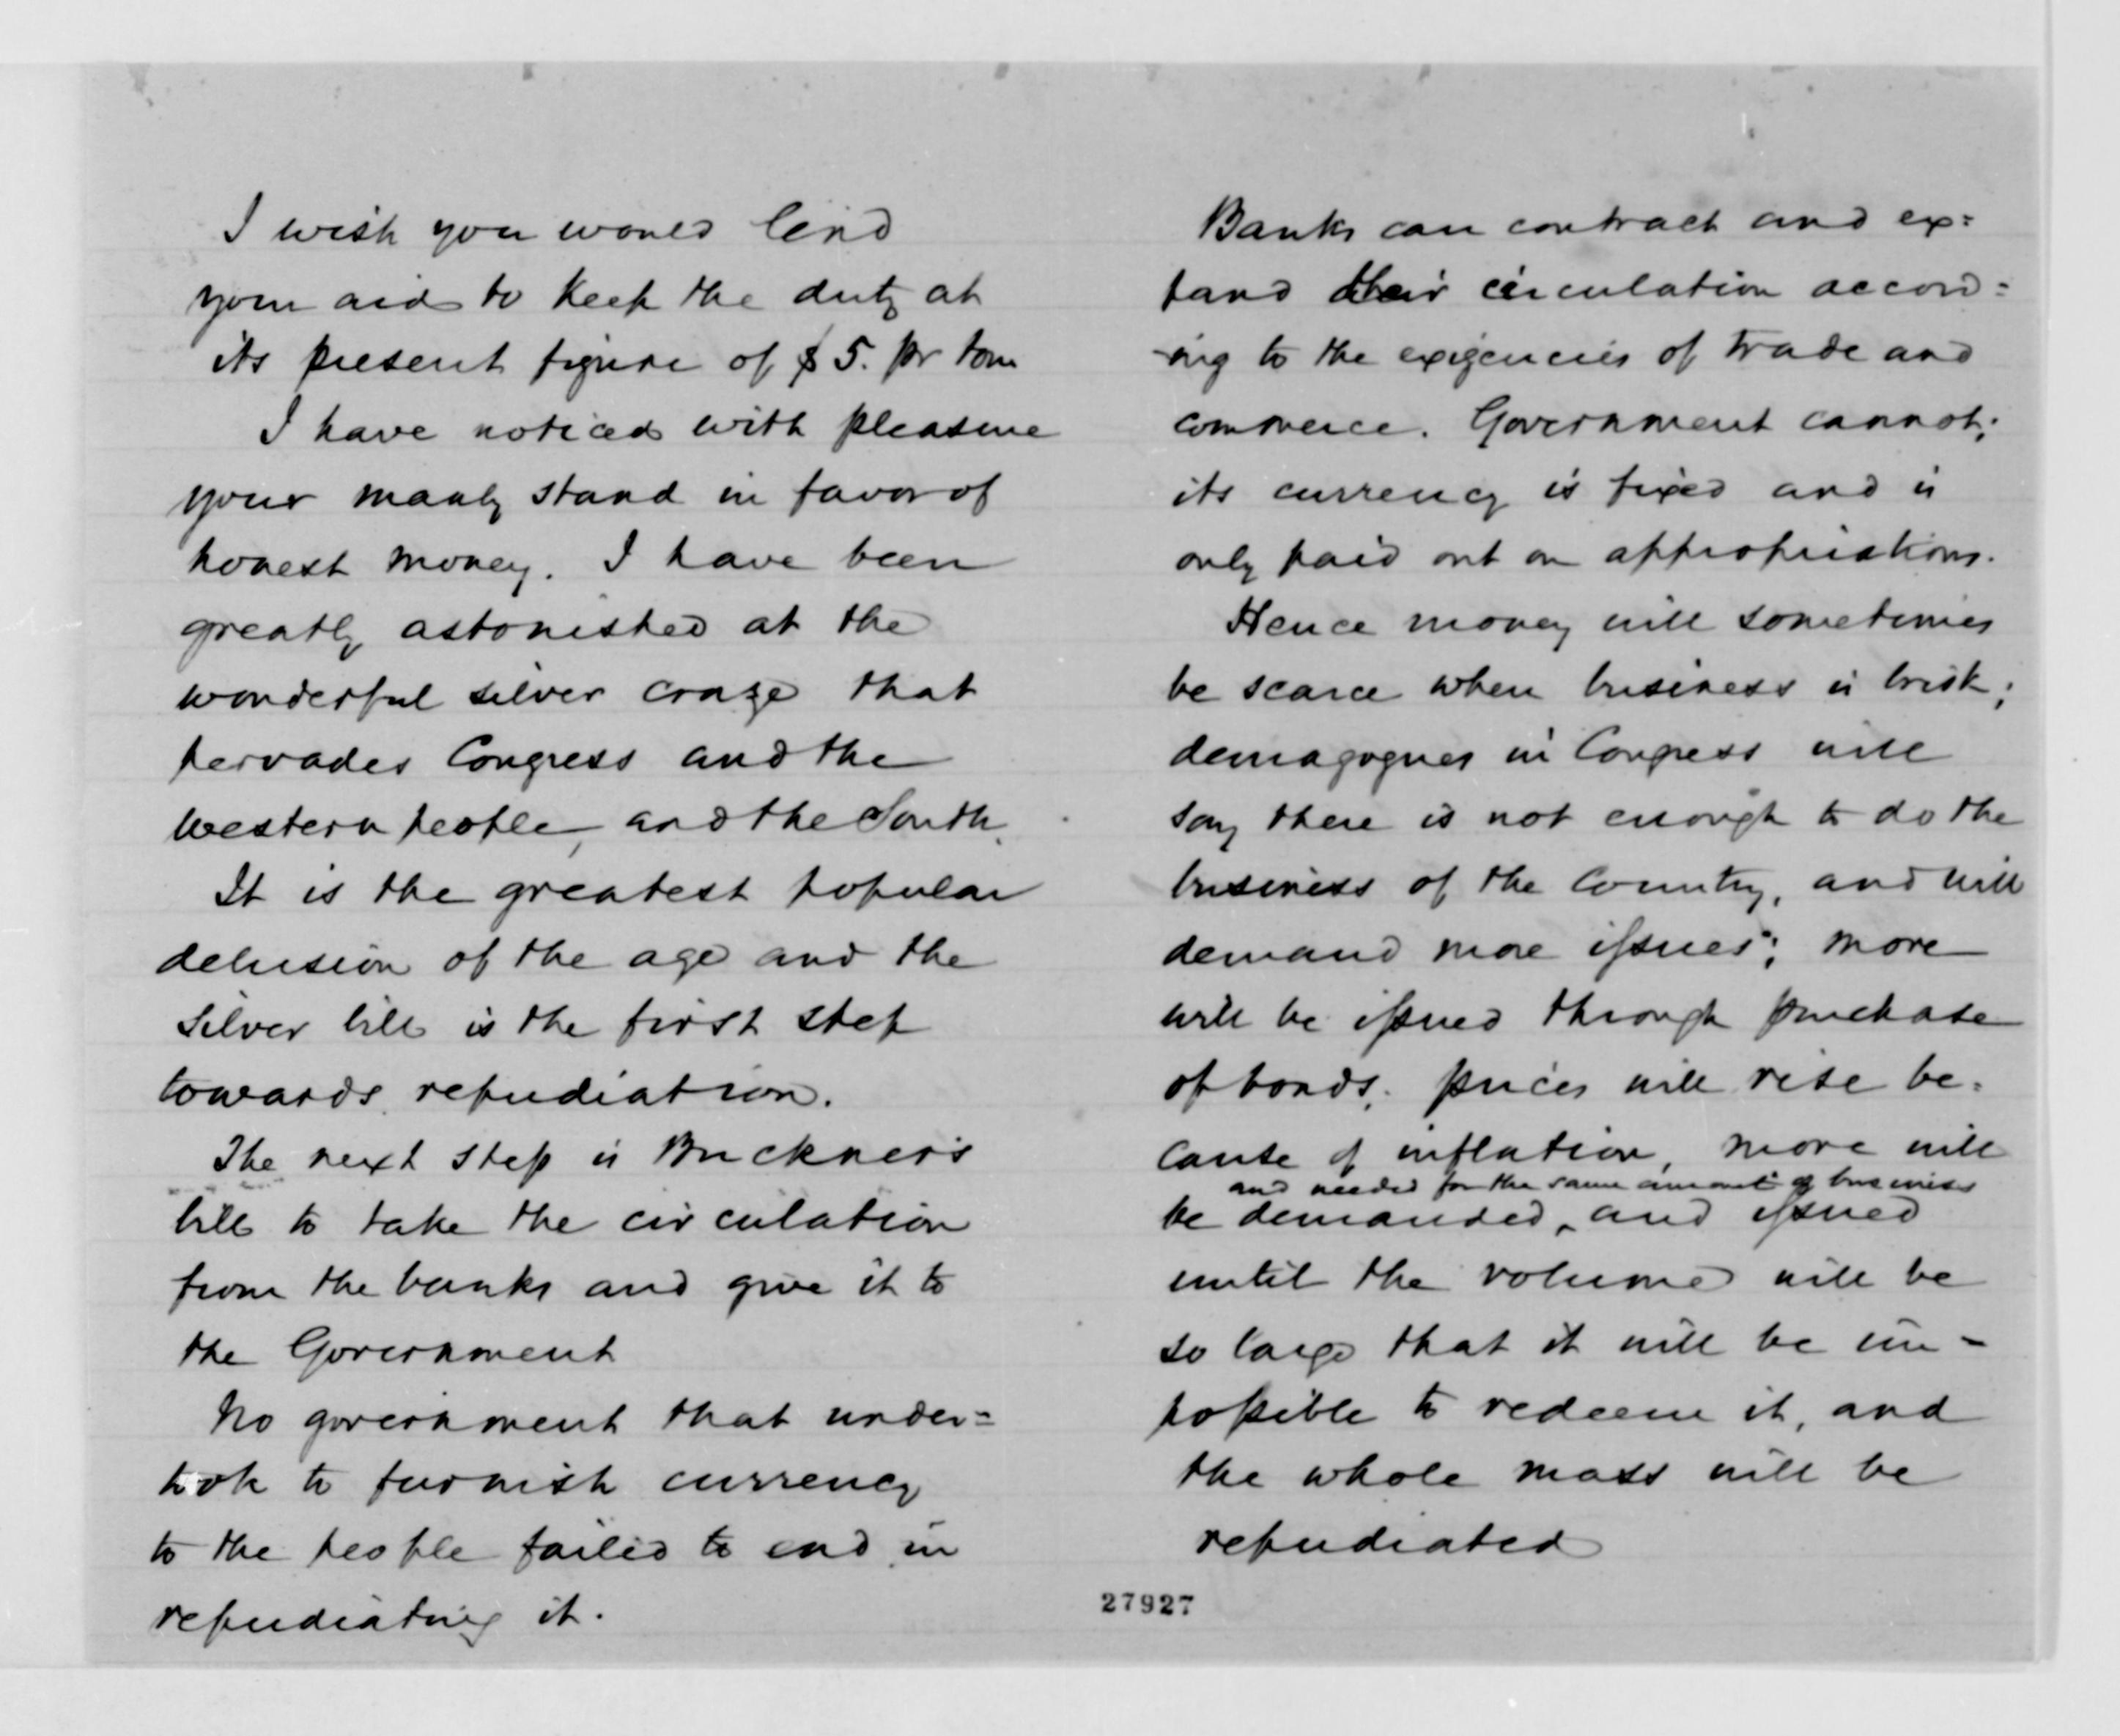 I wish you would lend
your aid to keep the duty at
its present figure of $5. pr ton
I have noticed with pleasure
your manly stand in favor of
honest money. I have been
greatly astonished at the
wonderful silver craze that
pervades Congress and the
western people, and the South.
It is the greatest popular
delusion of the age and the
silver bill is the first step
towards repudiation.
The next step is Buckner's
bill to take the circulation
from the banks and give it to
the Government
No government that under=
took to furnish currency
to the people failed to end in
repudiating it.
Banks can contract and ex=
pand their circulation accord=
ing to the exigencies of trade and
commerce. Government cannot;
its currency is fixed and is
only paid out on appropriations.
Hence money will sometimes
be scarce when business is brisk;
demagogues in Congress will
say there is not enough to do the
business of the Country, and will
demand more issues; more
will be issued through purchase
of bonds; prices will rise be=
cause of inflation, more will
and needed for the same amount of business
be demanded, and issued
until the volume will be
so large that it will be im-
possible to redeem it, and
the whole mass will be
repudiated
27927